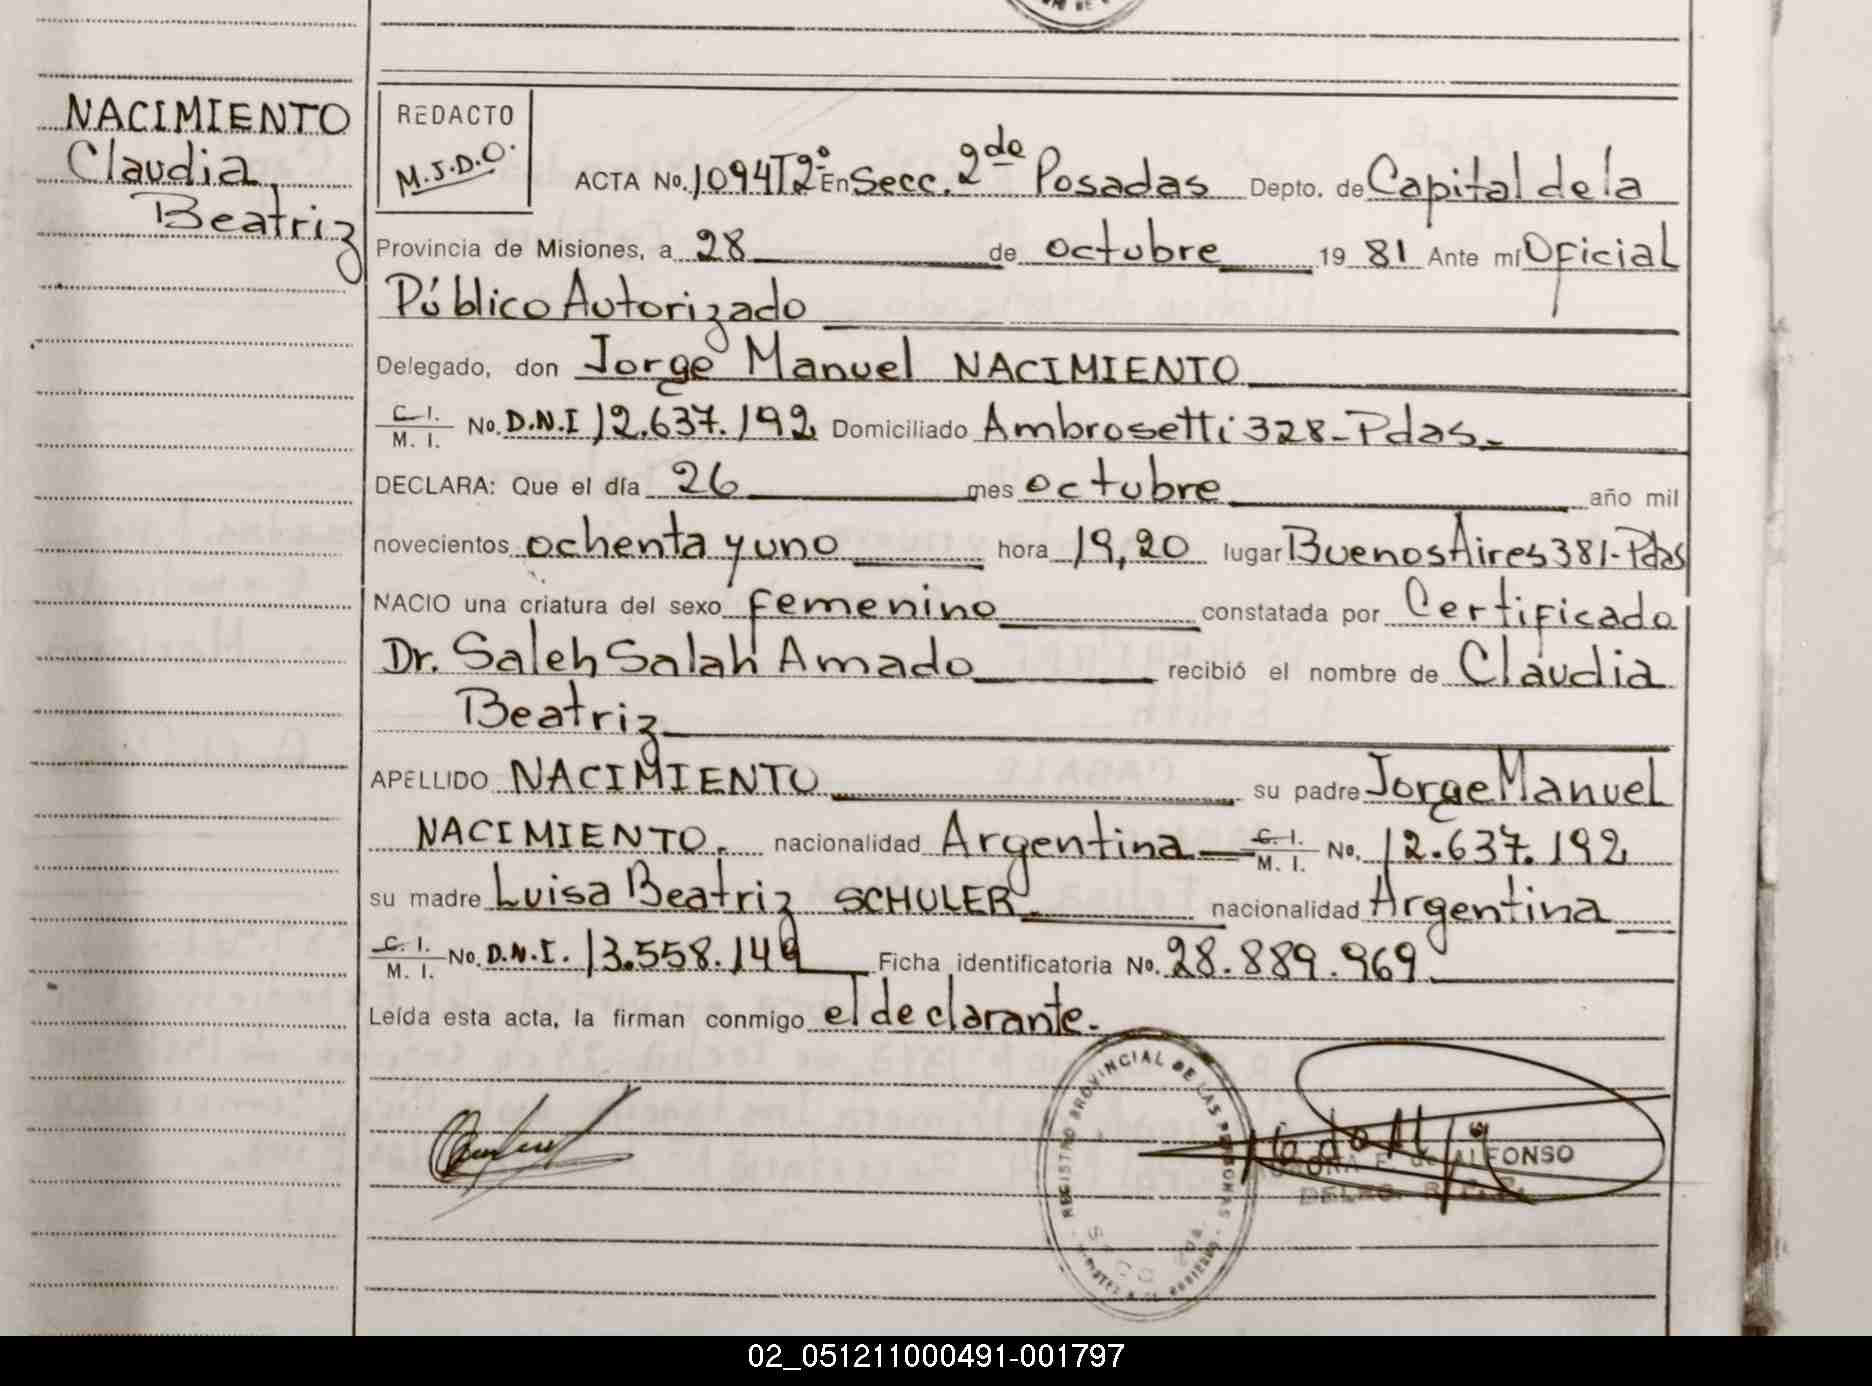 NACIMIENTO
Claudia
Beatriz
REDACTO
M.S.D.O.
ACTA No. 1094 T2º En Secc. 2da Posadas Depto. de Capital de la
Provincia de Misiones, a 28 de octubre 19 81 Ante mí Oficial
Público Autorizado
Delegado, don Jorge Manuel NACIMIENTO
C. I.
M. I. No. D.N.I 12.637.192 Domiciliado Ambrosetti 328-Pdas.
DECLARA: Que el día 26 mes octubre año mil
novecientos ochenta y uno hora 19,20 lugar Buenos Aires 381-Pdas
NACIO una criatura del sexo femenino constatada por Certificado
Dr. Saleh Salah Amado recibió el nombre de Claudia
Beatriz
APELLIDO NACIMIENTO su padre Jorge Manuel
NACIMIENTO. nacionalidad Argentina C. I. M. I. No. 12.637.192
su madre Luisa Beatriz SCHULER nacionalidad Argentina
C. I.
M. I. No. D.N.I. 13.558.149 Ficha identificatoria No. 28.889.969
Leída esta acta, la firman conmigo el declarante.
REGISTRO PROVINCIAL DE LAS PERSONAS
ALFONSO
02_051211000491-001797